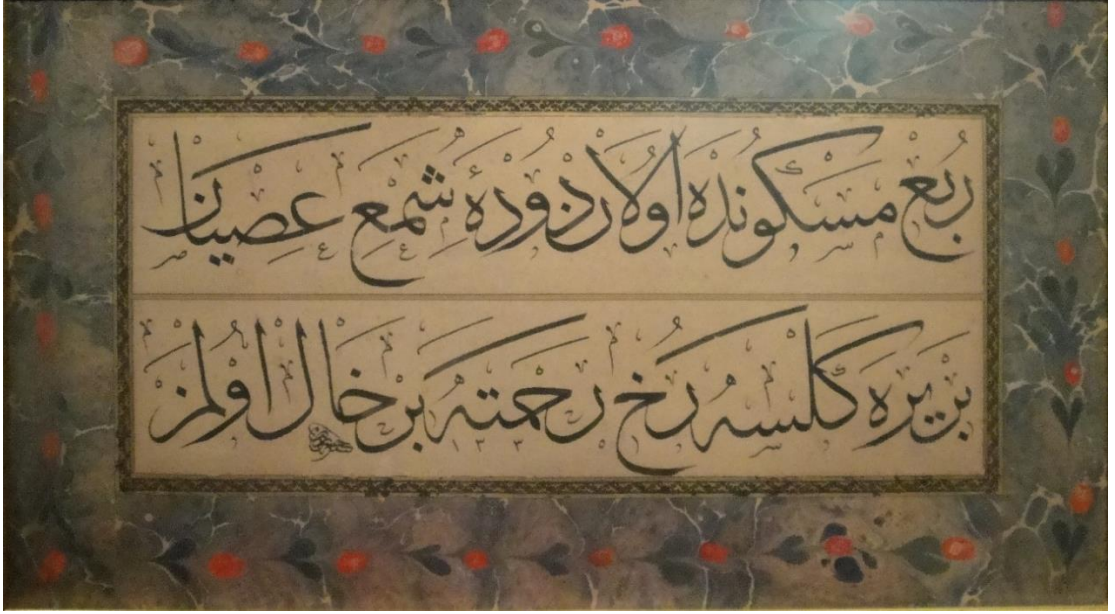 ربع مسكونده اولان دودهٔ شمع عصیان
بریره گلسه رخ رحمته بر خال اولمز